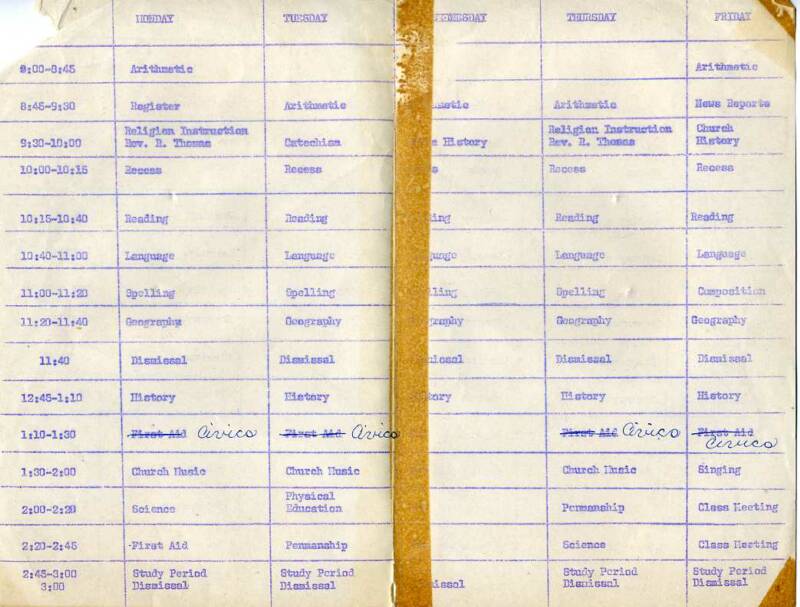 MONDAY TUESDAY THURSDAY FRIDAY
9:00-8:45 Arithmetic Arithmetic
8:45-9:30 Register Arithmetic Arithmetic News Reports
Religion Instruction Religion Instruction Church
9:30-10:00 Rev. R. Thomas Catechism History Rev. R. Thomas History
10:00-10:15 Recess Recess Recess Recess
10:15-10:40 Reading Reading Reading Reading
10:40-11:00 Language Language Language Language
11:00-11:20 Spelling Spelling Spelling Composition
11:20-11:40 Geography Geography Geography Geography
11:40 Dismissal Dismissal Dismissal Dismissal
12:45-1:10 History History History History
1:10-1:30 First Aid Civics First Aid Civics First Aid Civics First Aid
Civics
1:30-2:00 Church Music Church Music Church Music Singing
Physical
2:00-2:20 Science Education Penmanship Class Meeting
2:20-2:45 First Aid Penmanship Science Class Meeting
2:45-3:00 Study Period Study Period Study Period Study Period
3:00 Dismissal Dismissal Dismissal Dismissal